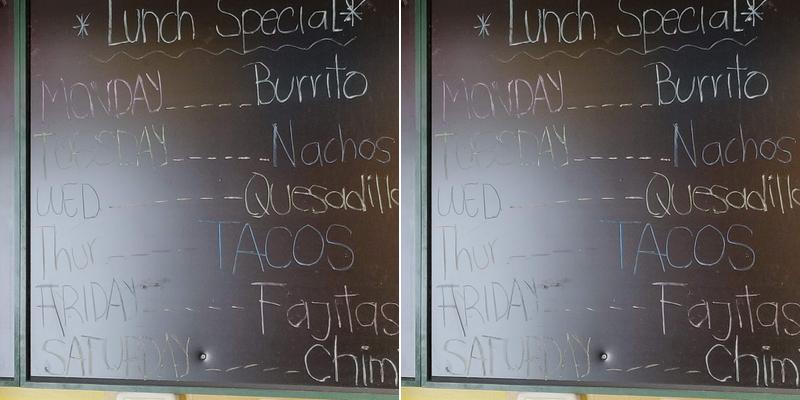 * Lunch Special *
MONDAY ------ Burrito
TUESDAY ------ Nachos
WED ------ Quesadill
Thur ----- TACOS
FRIDAY ------ Fajitas
SATURDAY ------ Chim
* Lunch Special *
MONDAY ------ Burrito
TUESDAY ------ Nachos
WED ------ Quesadill
Thur ----- TACOS
FRIDAY ------ Fajitas
SATURDAY ------ Chim